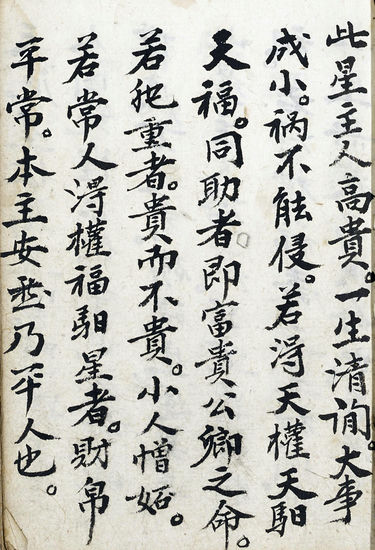 此星主人高貴。一生清詢。大事
成小。祸不能侵。若得天權天馹
天福。同助者。即富貴公卿之命。
若犯重者。貴而不貴。小人憎妬。
若常人得權福馹星者。財帛
平常。本主安逃乃平人也。